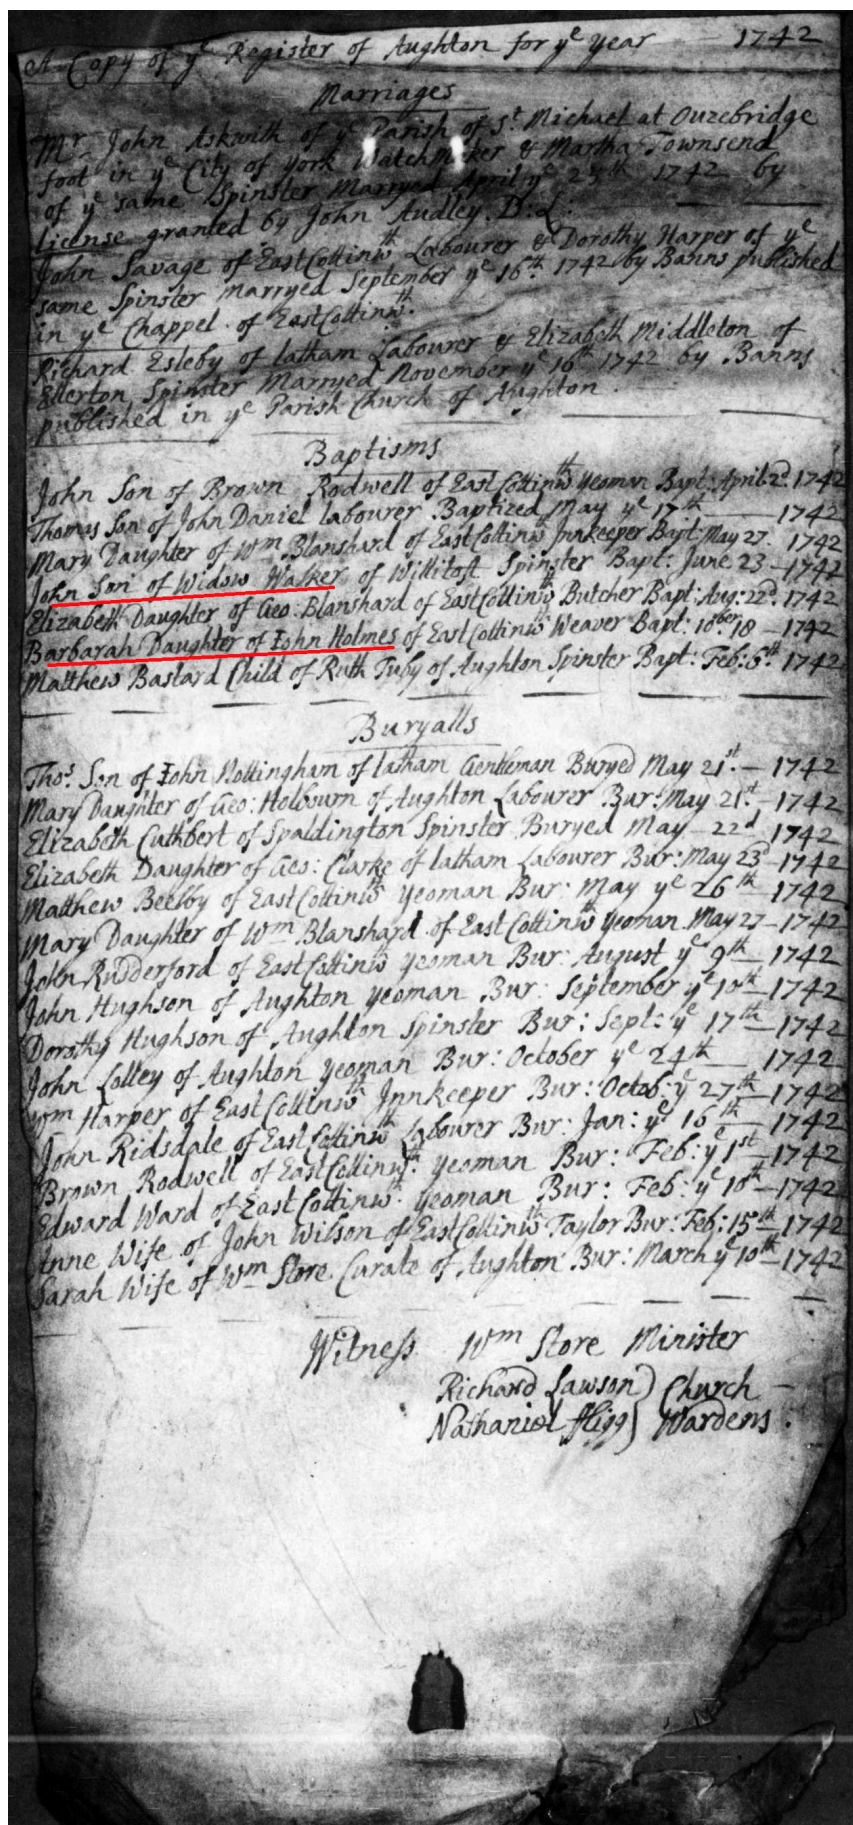 A Copy of yᵉ Register of Aughton for yᵉ year 1742
Marriages
Mʳ John Askwith of yᵉ Parish of Sᵗ Michael at Ouzebridge
foot in yᵉ City of York Watchmaker & Martha Townsend
of yᵉ same Spinster Marryed April yᵉ 1742 by
License granted by John Audley. D:L:
John Savage of East Cottinwᵗʰ Labourer & Dorothy Harper of yᵉ
same Spinster Marryed September yᵉ 16ᵗʰ 1742 by Banns published
in yᵉ Chappel of East Cottinwᵗʰ.
Richard Esleby of latham Labourer & Elizabeth Middleton of
Ellerton Spinster Marryed November yᵉ 16ᵗʰ 1742 by Banns
published in yᵉ Parish Church of Aughton.
Baptisms
John Son of Brown Rodwell of East Cottinwᵗʰ Yeoman Bapt: April 2ᵈ. 1742
Thomas Son of John Daniel labourer Baptized May yᵉ 17ᵗʰ 1742
Mary Daughter of Wᵐ Blanshard of East Cottinwᵗʰ Innkeeper Bapt: May 27. 1742
John Son of Widow Walker of Willitoft Spinster Bapt: June 23 - 1742
Elizabeth Daughter of Geo: Blanshard of East Cottinwᵗʰ Butcher Bapt: Aug: 22ᵈ. 1742
Barbarah Daughter of Iohn Holmes of East Cottinwᵗʰ Weaver Bapt: 10ᵇᵉʳ 18 - 1742
Matthew Bastard Child of Ruth Tuby of Aughton Spinster Bapt: Feb: 6ᵗʰ 1742
Buryalls
Thoˢ. Son of Iohn Nottingham of latham Gentleman Buryed May 21ˢᵗ. - 1742
Mary Daughter of Geo: Holbourn of Aughton Labourer Bur: May 21ˢᵗ - 1742
Elizabeth Cuthbert of Spaldington Spinster Buryed May - 22ᵈ 1742
Elizabeth Daughter of Geo: Clarke of latham Labourer Bur: May 23ᵈ - 1742
Matthew Beelby of East Cottinwᵗʰ Yeoman Bur: May yᵉ 26ᵗʰ - 1742
Mary Daughter of Wᵐ Blanshard of East Cottinwᵗʰ Yeoman May 27 - 1742
John Rudderford of East Cottinwᵗʰ Yeoman Bur: August yᵉ 9ᵗʰ - 1742
John Hughson of Aughton Yeoman Bur: September yᵉ 10ᵗʰ - 1742
Dorothy Hughson of Aughton Spinster Bur: Sept: yᵉ 17ᵗʰ - 1742
John Lolley of Aughton Yeoman Bur: October yᵉ 24ᵗʰ 1742
Wᵐ Harper of East Cottinwᵗʰ Innkeeper Bur: Octob: yᵉ 27ᵗʰ - 1742
John Ridsdale of East Cottinwᵗʰ Labourer Bur: Jan: yᵉ 16ᵗʰ - 1742
Brown Rodwell of East Cottinwᵗʰ. Yeoman Bur: Feb: yᵉ 1ˢᵗ - 1742
Edward Ward of East Cottinwᵗʰ. Yeoman Bur: Feb: yᵉ 10ᵗʰ - 1742
Anne Wife of John Wilson of East Cottinwᵗʰ Taylor Bur: Feb: 15ᵗʰ - 1742
Sarah Wife of Wᵐ Store Curate of Aughton Bur: March yᵉ 10ᵗʰ - 1742
Witness Wᵐ Store Minister
Richard Lawson } Church
Nathaniel fligg } Wardens.